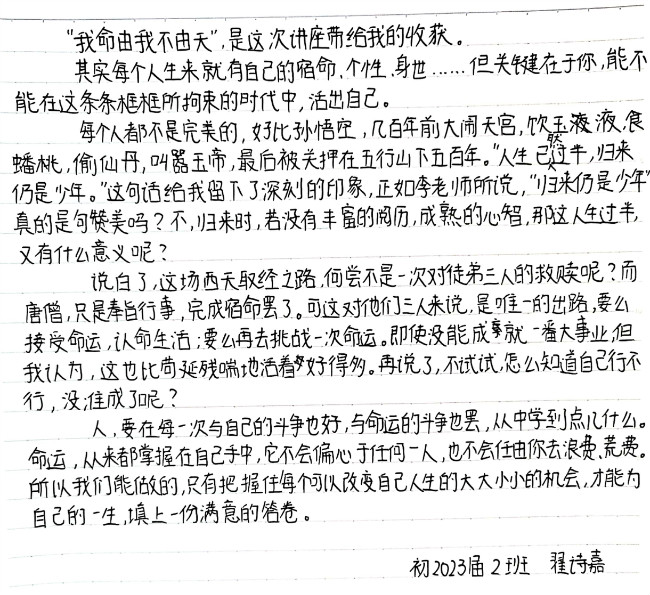 “我命由我不由天”，是这次讲座带给我的收获。
其实每个人生来就有自己的宿命、个性、身世……但关键在于你，能不
能在这条条框框所拘束的时代中，活出自己。
每个人都不是完美的，好比孙悟空，几百年前大闹天宫，饮玉液，食
蟠桃，偷仙丹，叫嚣玉帝，最后被关押在五行山下五百年。“人生已然过半，归来
仍是少年。”这句话给我留下了深刻的印象，正如李老师所说，“归来仍是少年”
真的是句赞美吗？不，归来时，若没有丰富的阅历，成熟的心智，那这人生过半，
又有什么意义呢？
说白了，这场西天取经之路，何尝不是一次对徒弟三人的救赎呢？而
唐僧，只是奉旨行事，完成宿命罢了。可这对他们三人来说，是唯一的出路，要么
接受命运，认命生活；要么再去挑战一次命运。即使没能成就一番大事业，但
我认为，这也比苟延残喘地活着好得多。再说了，不试试，怎么知道自己行不
行，没准成了呢？
人，要在每一次与自己的斗争也好，与命运的斗争也罢，从中学到点儿什么。
命运，从来都掌握在自己手中，它不会偏心于任何一人，也不会任由你去浪费、荒费。
所以我们能做的，只有把握住每个可以改变自己人生的大大小小的机会，才能为
自己的一生，填上一份满意的答卷。
初2023届2班 翟诗嘉